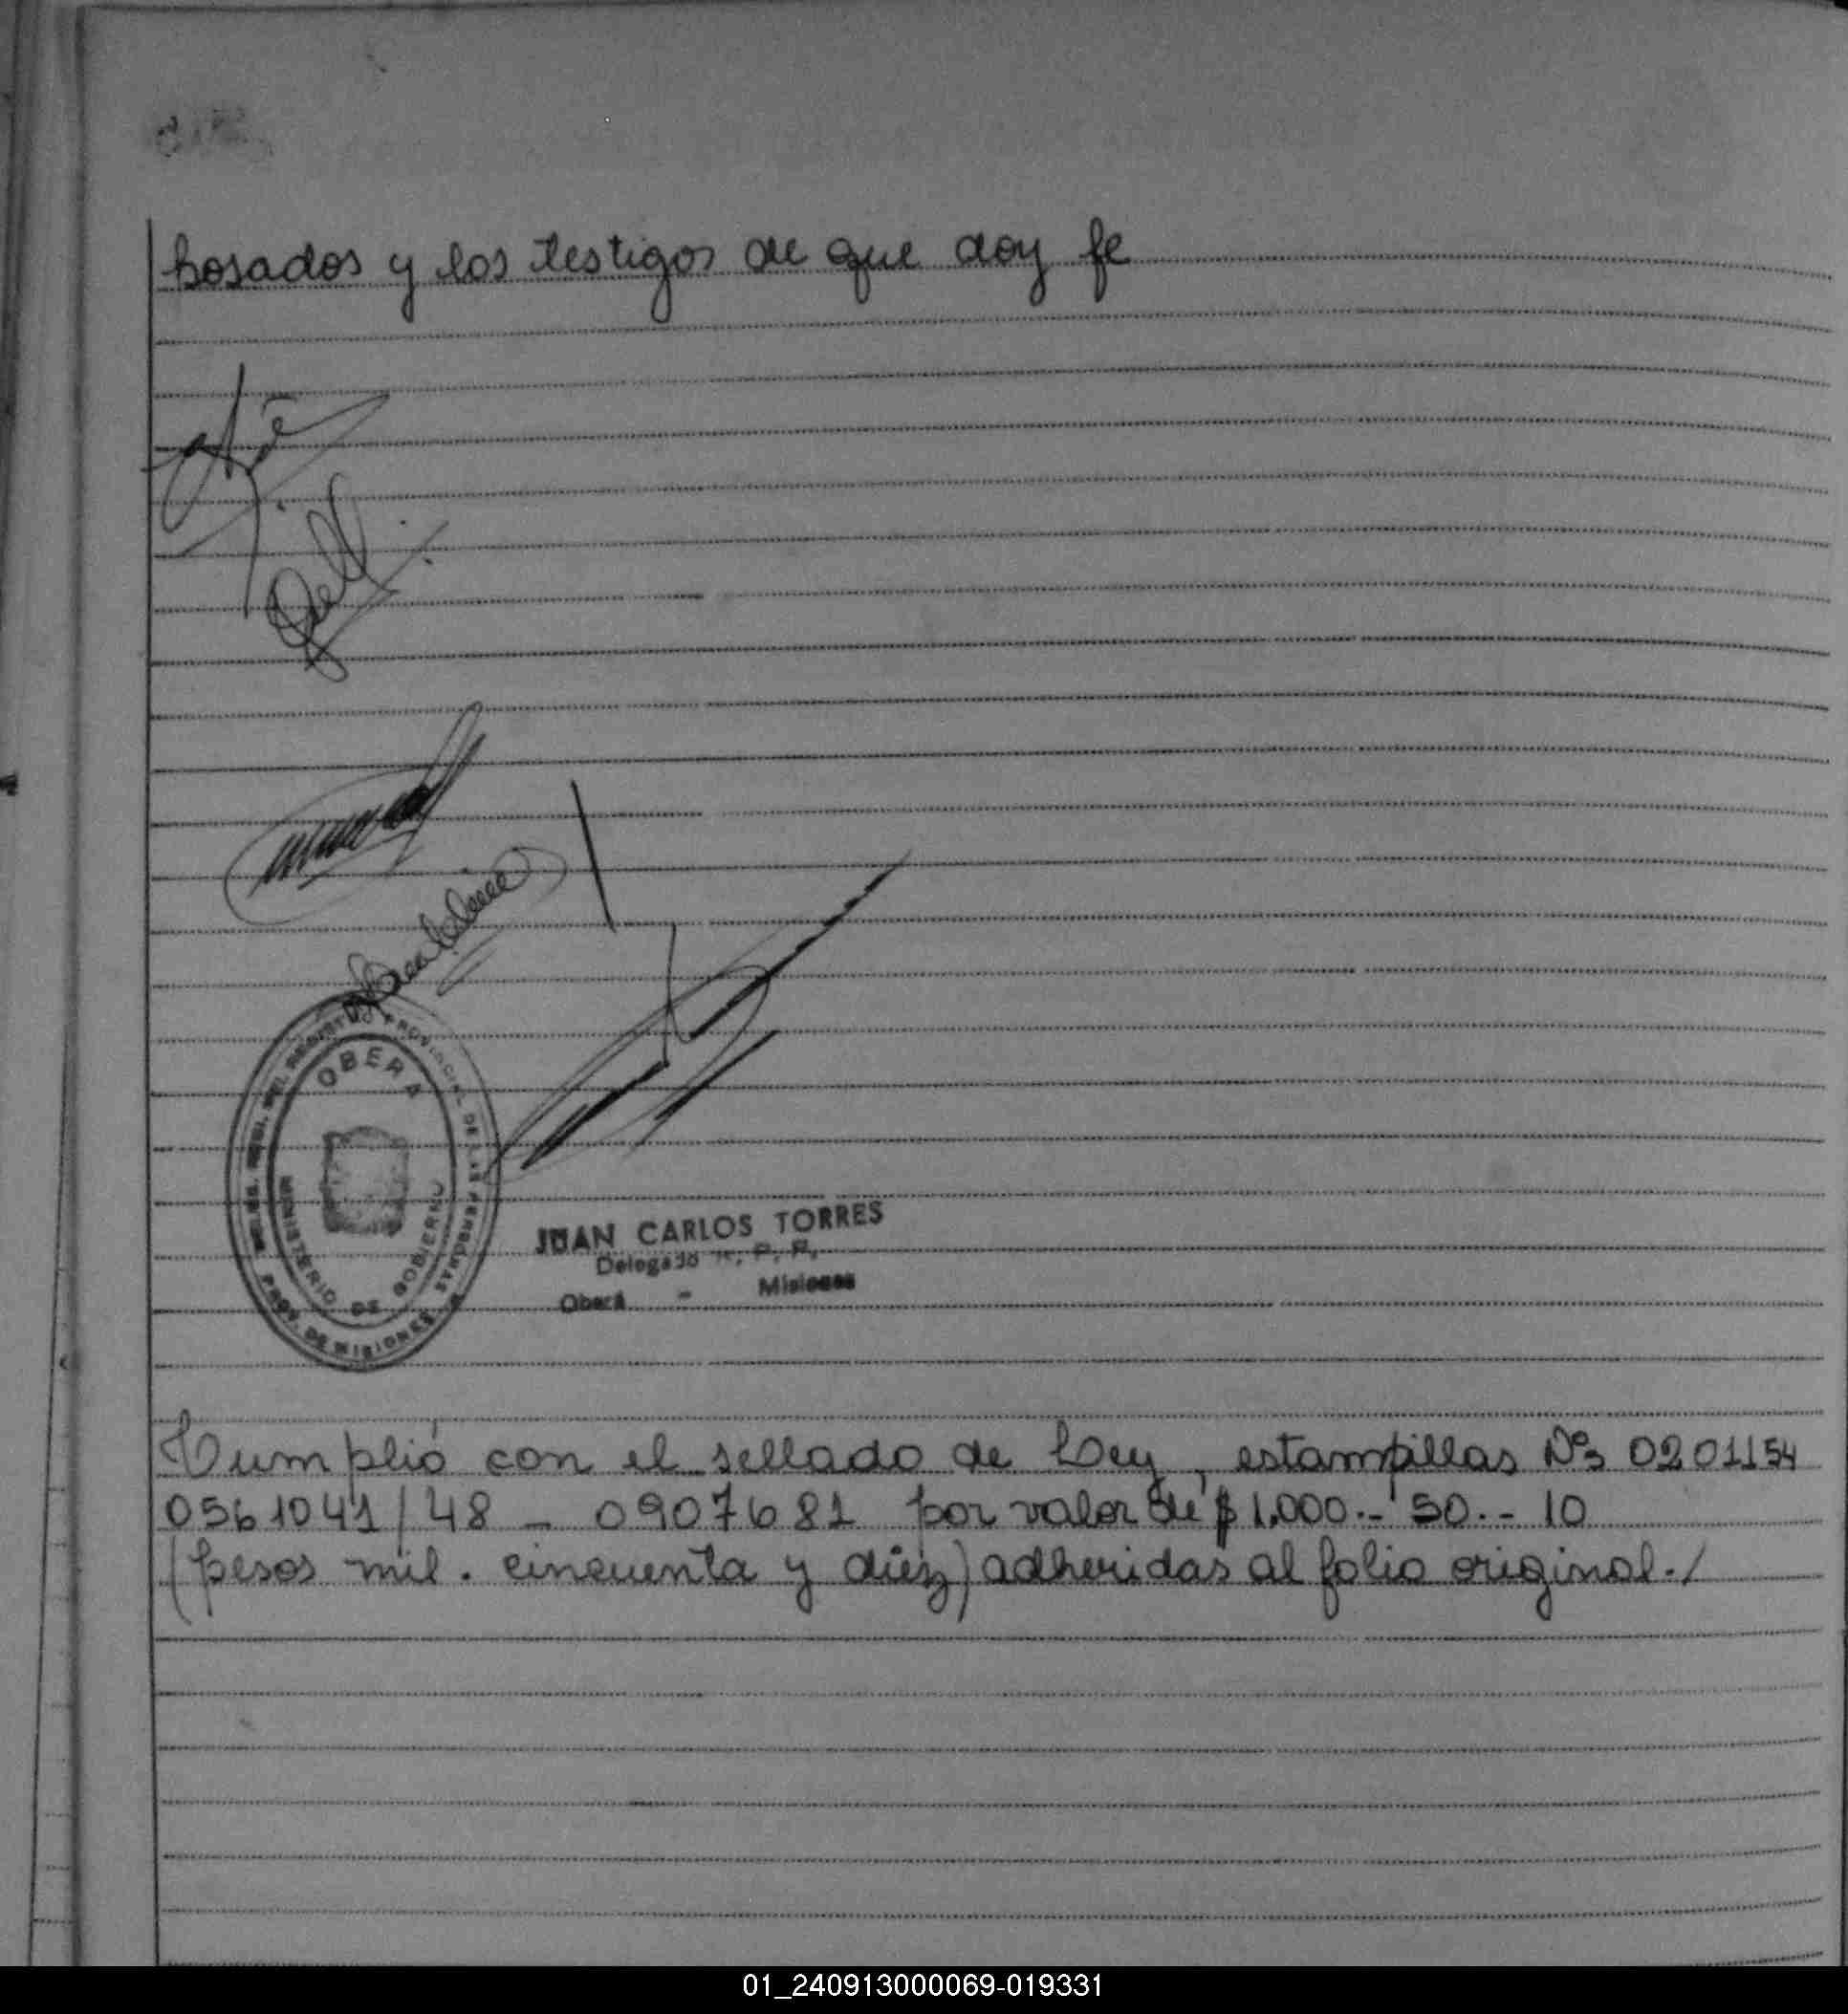 hosados y los testigos de que doy fe
OBERA
PROVINCIAL DE LAS PERSONAS
MINISTERIO DE GOBIERNO
PROV. DE MISIONES
JUAN CARLOS TORRES
Delegado R. P. P.
Oberá - Misiones
Cumplió con el sellado de Ley, estampillas Nos 0201154
0561041/48 - 0907681 por valor de $ 1.000.- 50.- 10
(pesos mil. cincuenta y diéz) adheridas al folio original./
01_240913000069-019331